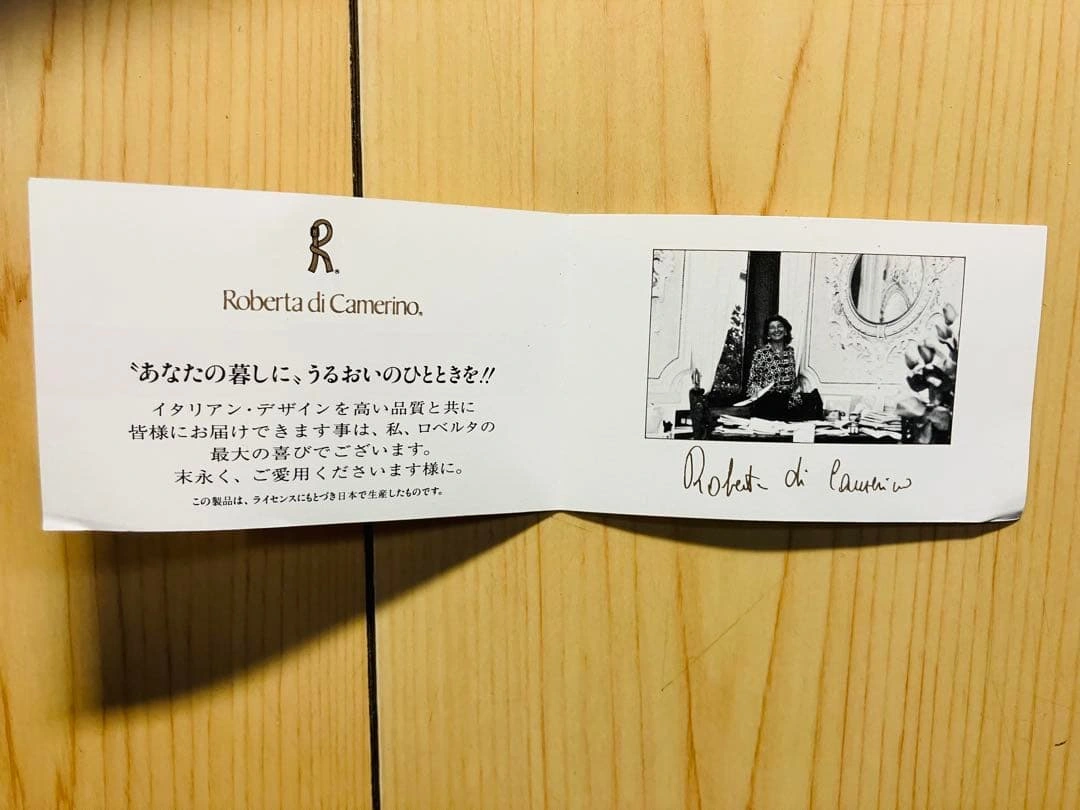 R®
Roberta di Camerino®
〝あなたの暮しに〟うるおいのひとときを!!
イタリアン・デザインを高い品質と共に
皆様にお届けできます事は、私、ロベルタの
最大の喜びでございます。
末永く、ご愛用くださいます様に。
この製品は、ライセンスにもとづき日本で生産したものです。
Roberta di Camerino